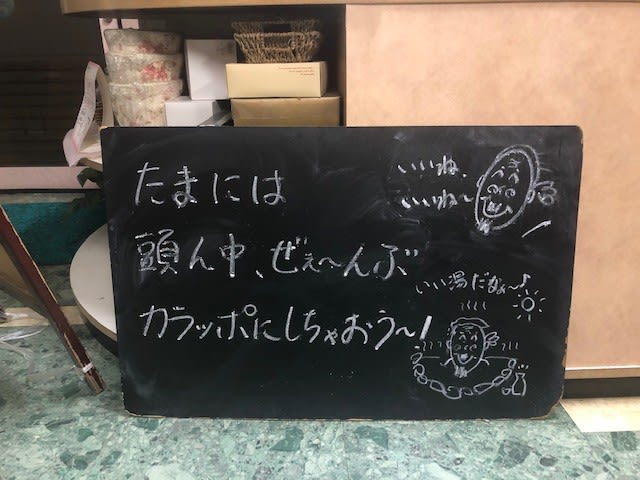 たまには
頭ん中、ぜぇ〜んぶ
カラッポにしちゃおう〜!
いいね、
いいね〜
いい湯だなぁ〜♪